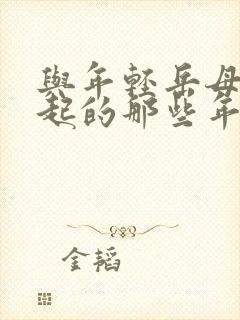 與年輕岳母
起的那些年
金韬